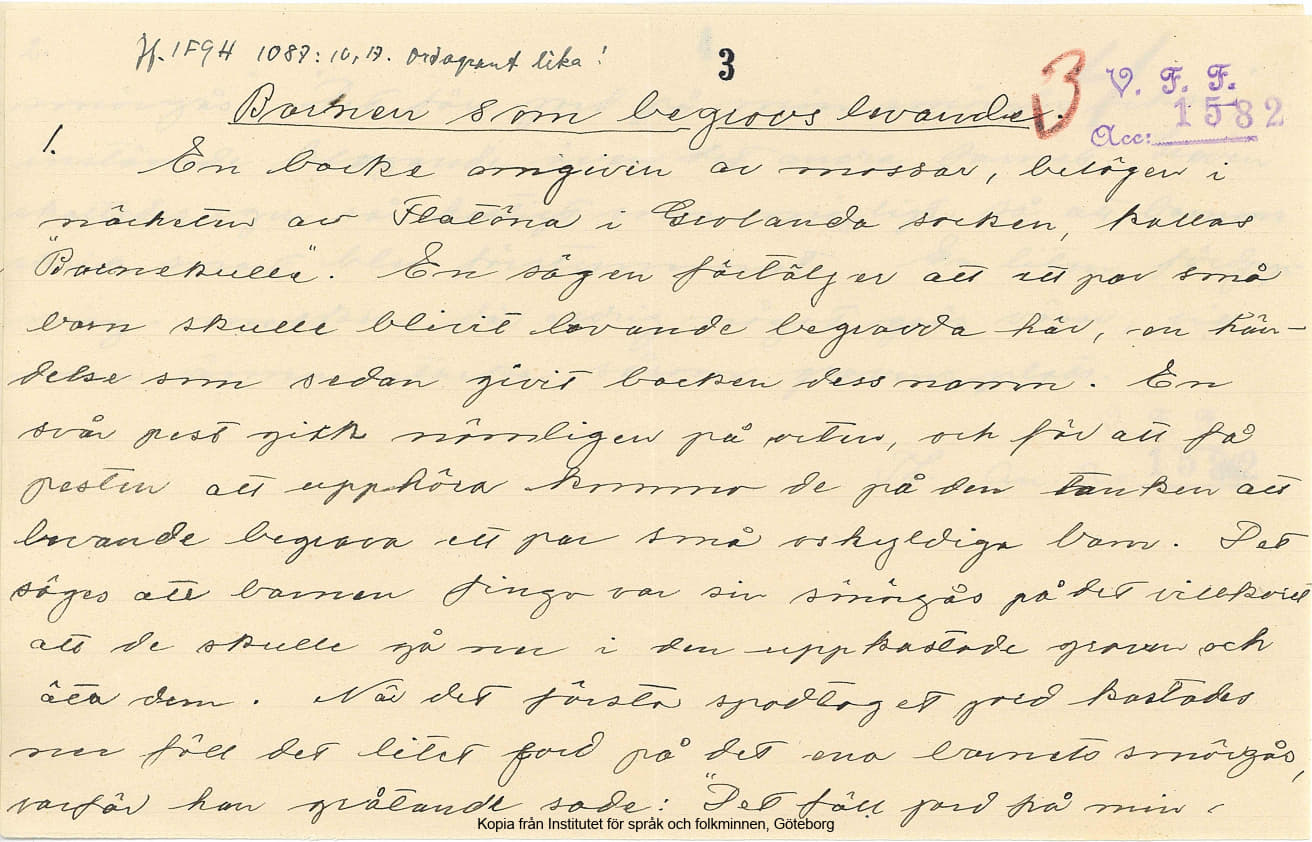 Jf. IFGH 1087: 10, 17. ordagrant lika!
3
3
V. F. F.
Acc: 1582
Barnen som begrovs levande.
1.
En backe omgiven av mossar, belägen i
närheten av Flatöna i Grolanda socken, kallas
"Barnekulle". En sägen förtäljer att ett par små
barn skulle blivit levande begravda här, en hän-
delse som sedan givit backen dess namn. En
svår pest gick nämligen på orten, och för att få
pesten att upphöra kommo de på den tanken att
levande begrava ett par små oskyldiga barn. Det
säges att barnen fingo var sin smörgås på det villkoret
att de skulle gå ner i den uppkastade graven och
äta dem. När det första spadtaget jord kastades
ner föll det litet jord på det ena barnets smörgås,
varför han gråtande sade: "Det föll jord på min
Kopia från Institutet för språk och folkminnen, Göteborg